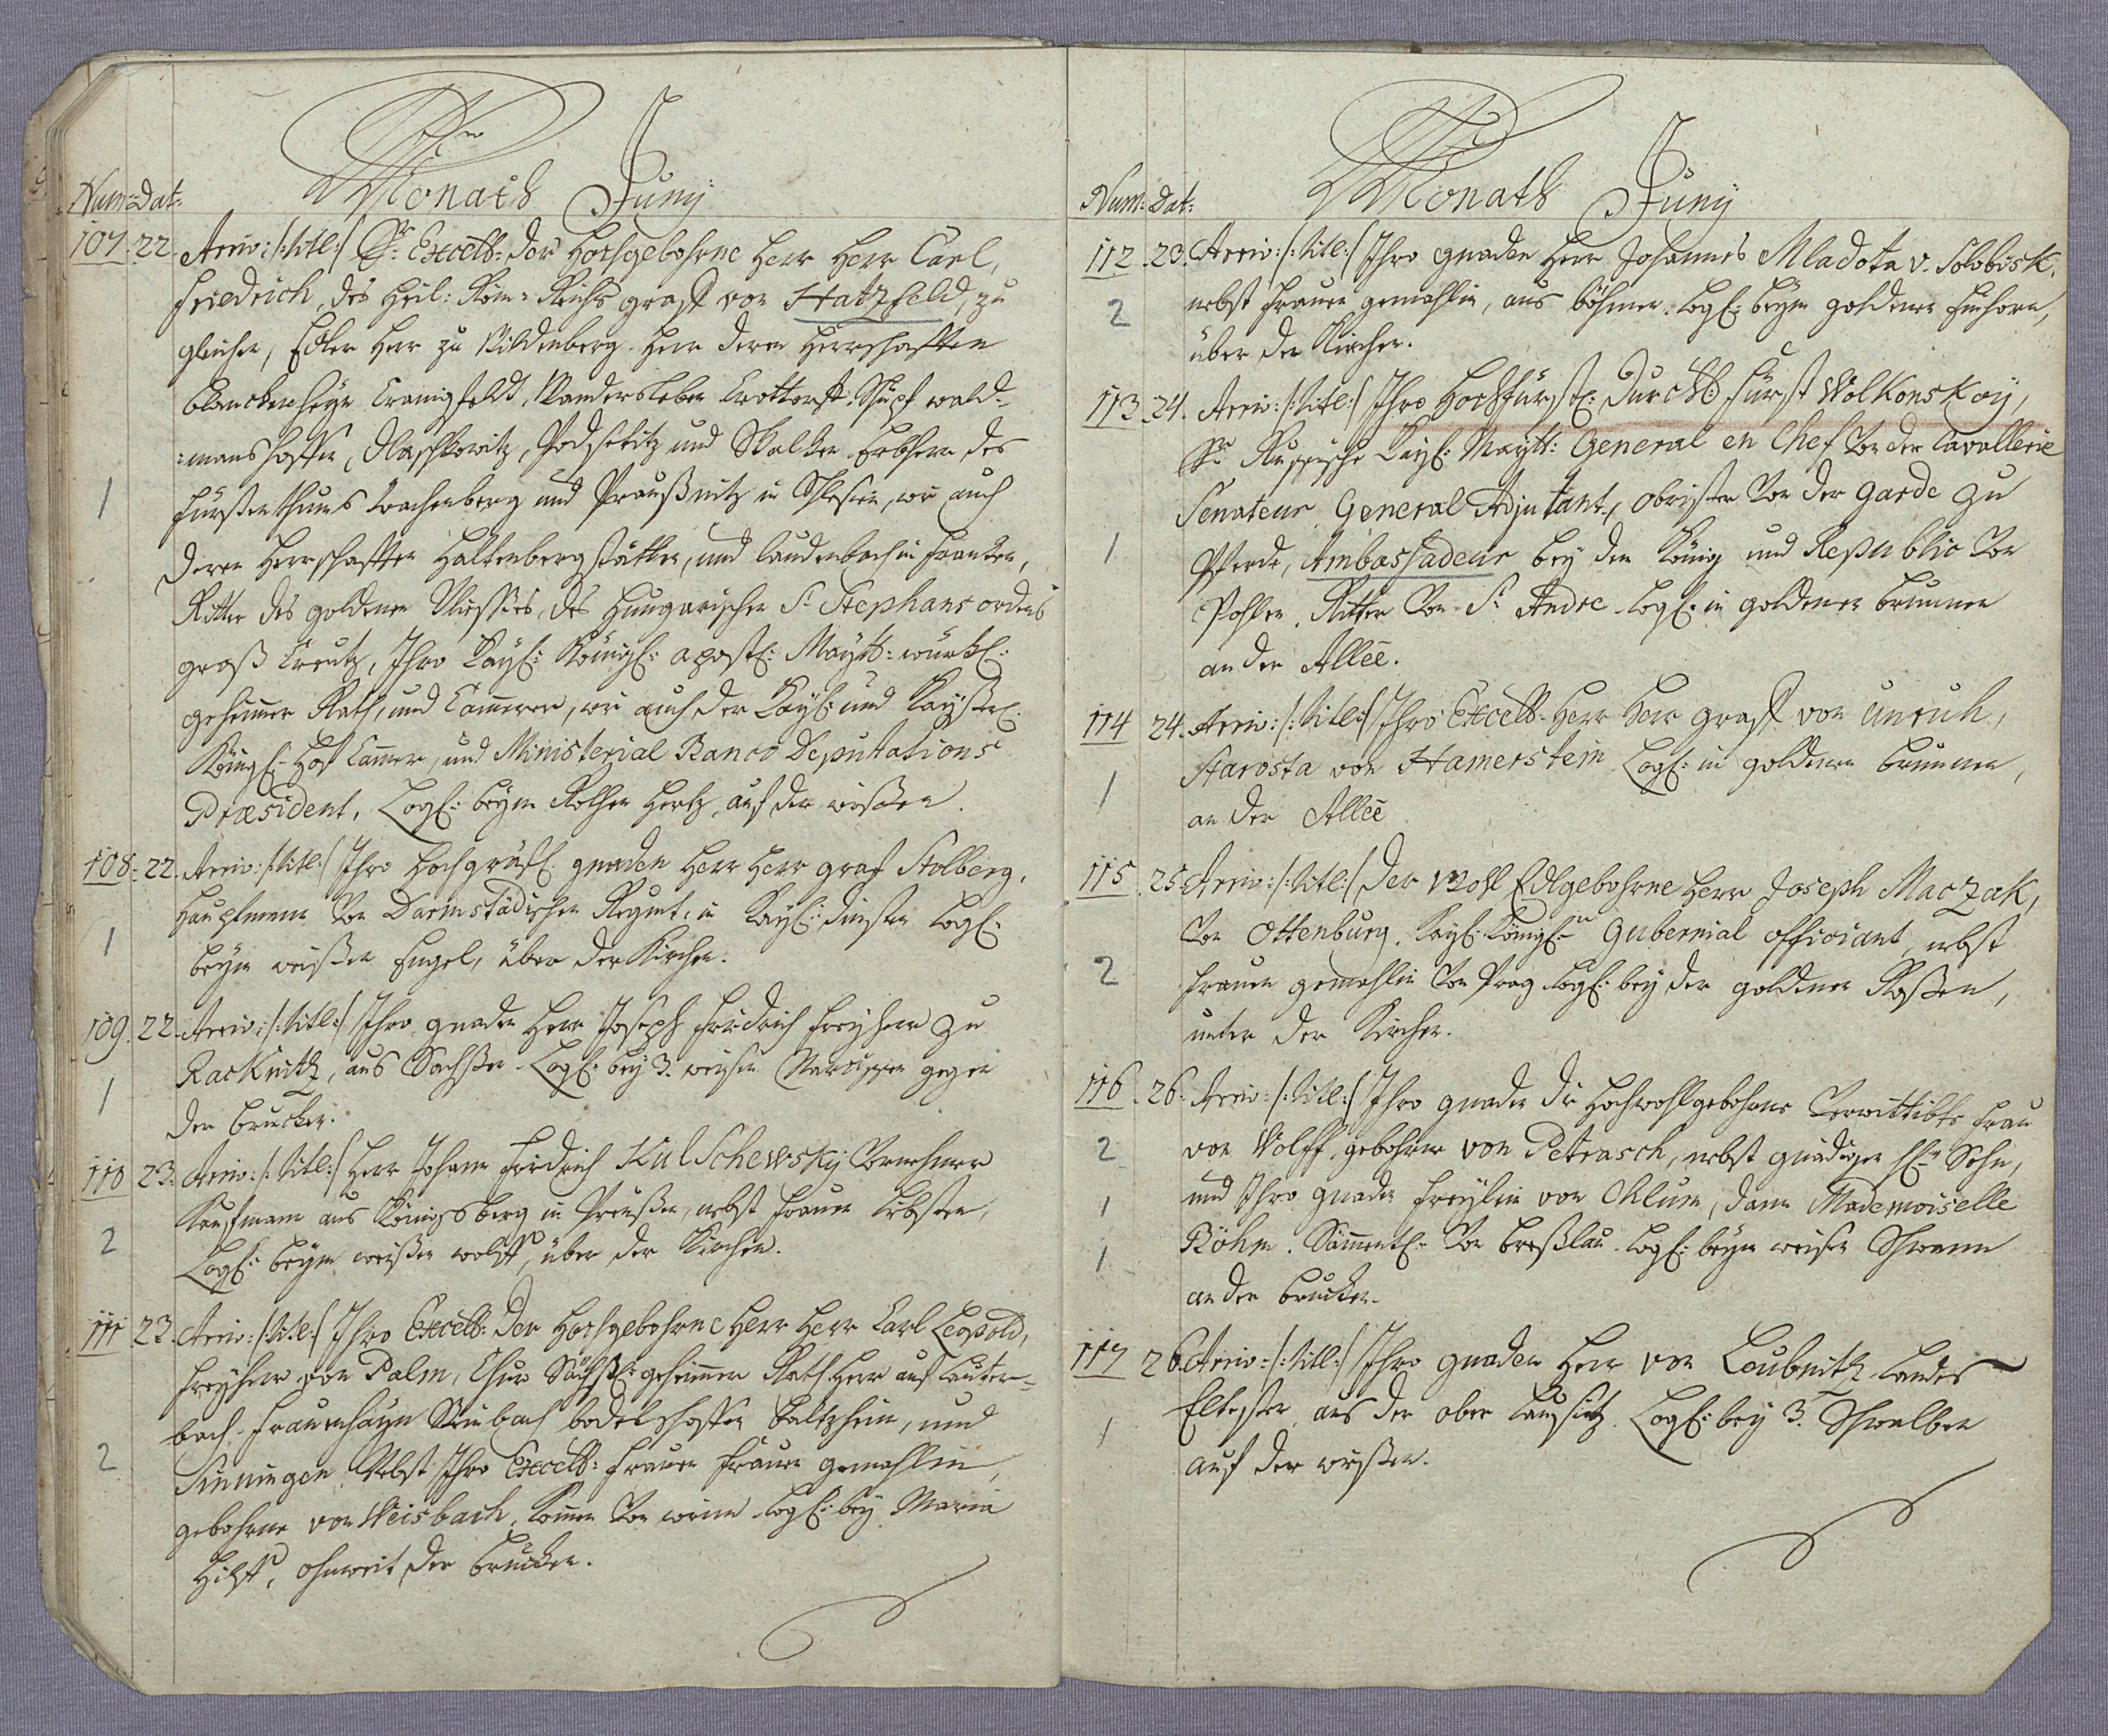 Monath Juny
Num: Dat:
107. 22. Arriv: /: titl: / Sr Excell: Der Hochgebohrne Herr Herr Carl,
Friedrich, des Heil: Röm: Reichs graff von Hatzfeld, zu
gleichen, Edler Herr zu Wildenberg. Herr deren Herrschafften
Blanckenheyn Cranigfeldt, Wandersleben Crottorff, Schupf wald-
=manshoffen, Dlaschkowitz, Podseditz und Skalken Erbherr des
1 Fürstenthums Trachenberg und Praußnitz in Schlesien, wie auch
deren Herrschafften Haltenbergstätten, und Laudenbach in Francken,
Ritter des goldenen Vliesses, des Hungarischen St Stephans ordens
groß Creutz, Ihro Kayl: Königl: apostl: Maytt: würkl:
geheimer Rath, und Cammerer, wie auch der Kayl: und Kayserl:
Königl: Hof Cammer, und Ministerial Banco Deputations
Præsident. Logl: beym Rothen Hertz, auf der wiesen.
108. 22. Arriv: /: titl: / Ihro Hochgräfl: gnaden Herr Herr graf Stolberg,
Hauptmann Von Darmstädischen Regmt: in Kayl: diensten Logl:
1 beym weißen Engel, über der Kirchen.
109. 22. Arriv: /: titl: / Ihro gnaden Herr Joseph Friedrich Freyherr zu
Racknitz, aus Sachsen. Logl: bey 3. weisen gegen
1 der brucken.
110 23. Arriv: /: titl: / Herr Johann Friedrich Kulschewsky Vornehmer
Kaufmann aus Königsberg in Preußen, nebst Frauen Liebsten,
2 Logl: beym weißen wolff, über der Kirchen.
111 23. Arriv: /: titl: / Ihro Excell: Der Hochgebohrne Herr Herr Carl Leopold,
Freyherr von Palm, Chur Sächßl: geheimer Rath Herr auf Lauter-
bach. Frauenhayn bodelshoffen Baltzheim, und
2 Sinningen. Nebst Ihro Excell: Frauen Frauen gemahlin,
gebohrne von Weisbach, Komen Von wienn. Logl: bey Maria
Hilff, ohnweit der brucken.
Monath Juny
Num: Dat:
112. 23. Arriv: /: titl: / Ihro gnaden Herr Johannes Mladota v. Solobisk.
2 nebst Frauen gemahlin, aus böhmen. Logl: beym goldenen Einhorn,
über der Kirchen.
113. 24. Arriv: /: titl: / Ihro Hochfürstl: Durchl: Fürst Wolkonskoy,
Sr Russische Kayl: Maytt: General en Chef Von der Cavallerie
Senateur, General Adjutant, obrister Von der Garde zu
1 Pferde, Ambassadeur bey dem König und Republic Von
Pohlen. Ritter Von St Andre. Logl: in goldenen brunnen
an der Alleé.
114 24. Arriv: /: titl: / Ihro Excell: Herr Herr graff von Unruh,
Starosta von Hamerstein. Logl: in goldenen brunnen,
1 an der Alleé
115. 25. Arriv: /: titl: / Der Wohl Edlgebohrne Herr Joseph Maczak,
Von Ottenburg. Kayl: Königl: Gubernial officiant, nebst
2 Frauen gemahlin Von Prag. Logl: bey der goldenen Rosen,
unter der Kirchen.
116. 26. Arriv: /: titl: / Ihro gnaden die Hochwohlgebohrne Verwittibte Frau
2 von Wolff, gebohrne von Petrasch, nebst gnädigen Hrn Sohn,
1 und Ihro gnaden Freylin von Chlum, dann Mademoiselle
1 Böhm. Sämmentl: Von Breßlau. Logl: beym weisen Schwann
an der brucken.
117 26. Arriv: /: titl: / Ihro gnaden Herr von Loubnitz Landes
Eltester, aus der ober Laußitz. Logl: bey 3. Schwalben
1 auf der wießen.